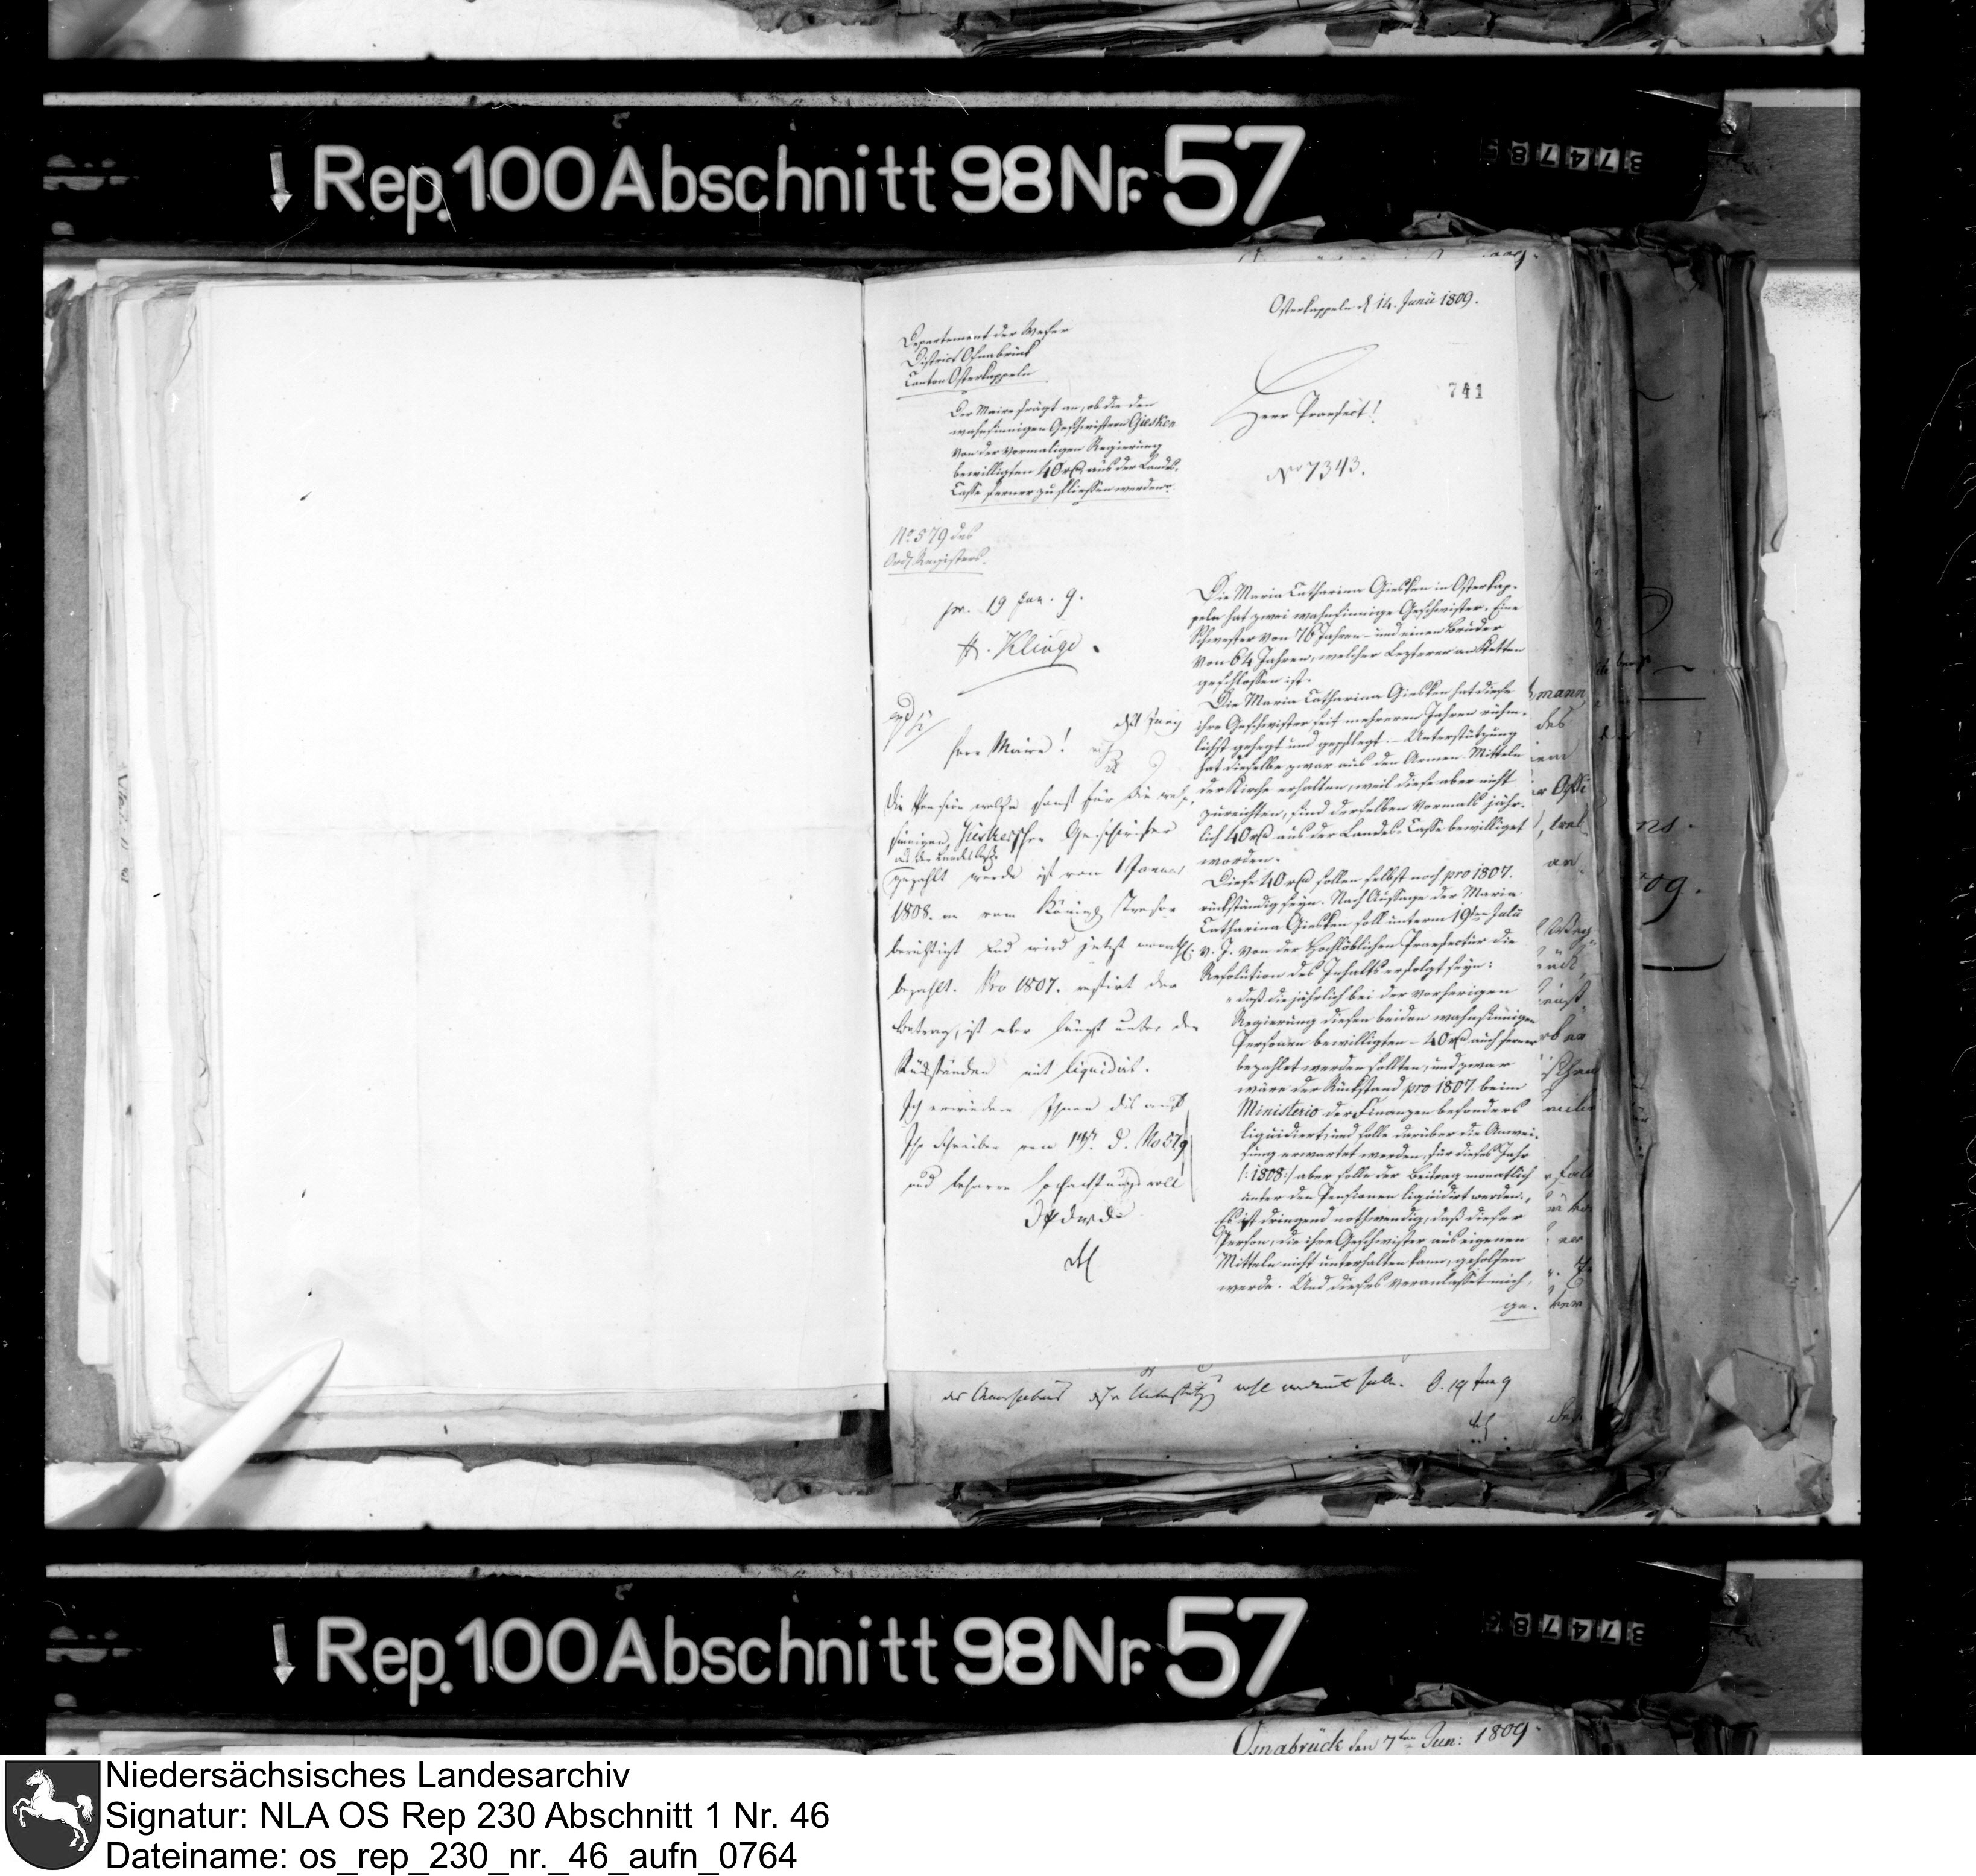 Rep. 100 Abschnitt 98 Nr. 57
Osterkappeln d 14. Junii 1809.
Departement der Weser
District Osnabrück
Canton Osterkappeln
741
Der Maire frägt an, ob die den
wahnsinnigen Geschwistern Giesken
von der vormaligen Regierung
bewilligten 40 aus der Landes-
Casse ferner zu fliessen werden?
Herr Praefect!
No 7343.
No. 579 des
Registers.
pr. 19 Jun. 9.
H. Klinge.
Herr Maire!
Die Pension welche sonst für die wahn-
sinnigen Geschwister
aus der Landescasse
gezahlt wurde ist vom 1 Januar
1808. an vom
und wird jetzt monathl.
bezahlt. Pro 1807. restirt der
Betrag, ist aber längst unter den
Rückständen mit liquidirt.
Ich erwiedere Ihnen dis auf
Ihr Schreiben vom d. No 579
und beharre hochachtungsvoll
Die Maria Catharina Giesken in Osterkap-
peln hat zwei wahnsinnige Geschwister. Eine
Schwester von 76 Jahren und einen Bruder
von 64 Jahren, welcher Lezterer an Ketten
geschlossen ist.
Die Maria Catharina Giesken hat diese
ihre Geschwister seit mehreren Jahren rühm-
lichst gehegt und gepflegt. – Unterstützung
hat dieselbe zwar aus den Armen Mitteln
der Kirche erhalten, weil diese aber nicht
zureichten, sind derselben vormals jähr-
lich 40 aus der Landes Casse bewilliget
worden.
Diese 40 sollen selbst noch pro 1807.
rückständig seyn. Nach Aussage der Maria
Catharina Giesken soll unterm 19ten Julii
v. J. von der Hochlöblichen Praefectur die
Resolution des Inhalts erfolgt seyn:
"daß die jährlich bei der vorherigen
Regierung diesen beiden wahnsinnigen
Personen bewilligten – 40 auch ferner
bezahlet werden sollten, und zwar
wäre der Rückstand pro 1807 beim
Ministerio der Finanzen besonders
liquidiert, und solle darüber die Anwei-
sung erwartet werden, für dieses Jahr
/:1808:/ aber solle der Beitrag monatlich
unter den Pensionen liquidirt werden."
Es ist dringend nothwendig, daß dieser
Person, die ihre Geschwister aus eigenen
Mitteln nicht unterhalten kann, geholfen
werde. Und dieses veranlasset mich,
ge-
19 Jun 9
Rep. 100 Abschnitt 98 Nr. 57
Osnabrück den 7ten Jun: 1809.
Niedersächsisches Landesarchiv
Signatur: NLA OS Rep 230 Abschnitt 1 Nr. 46
Dateiname: os_rep_230_nr._46_aufn_0764